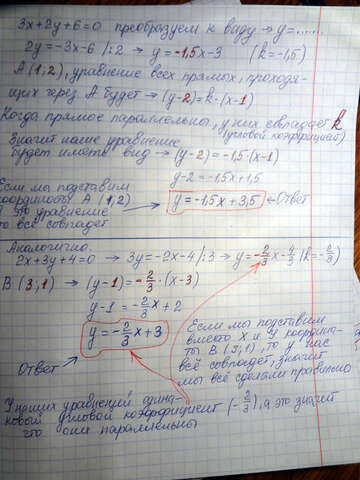 3x+2y+6=0 преобразуем к виду → y=......
2y=-3x-6 |:2 → y=-1,5x-3 (k=-1,5)
A(1;2), уравнение всех прямых, проходя-
щих через A будет → (y-2)=k·(x-1)
Когда прямые параллельны, у них совпадает k
(угловой коэффициент)
Значит наше уравнение
будет иметь вид → (y-2)=-1,5·(x-1)
y-2=-1,5x+1,5
y=-1,5x+3,5 ← Ответ
Если мы подставим
координаты A(1,2)
в это уравнение
то всё совпадет
Аналогично.
2x+3y+4=0 → 3y=-2x-4 |:3 → y=-2/3x-4/3 (k=-2/3)
B(3;1) → (y-1)=-2/3·(x-3)
y-1=-2/3x+2
y=-2/3x+3
Ответ
Если мы подставим
вместо x и y координа-
ты B(3,1), то у нас
всё совпадет, значит
мы всё сделали правильно
У наших уравнений одина-
ковый угловой коэффициент (-2/3), а это значит
что они параллельны